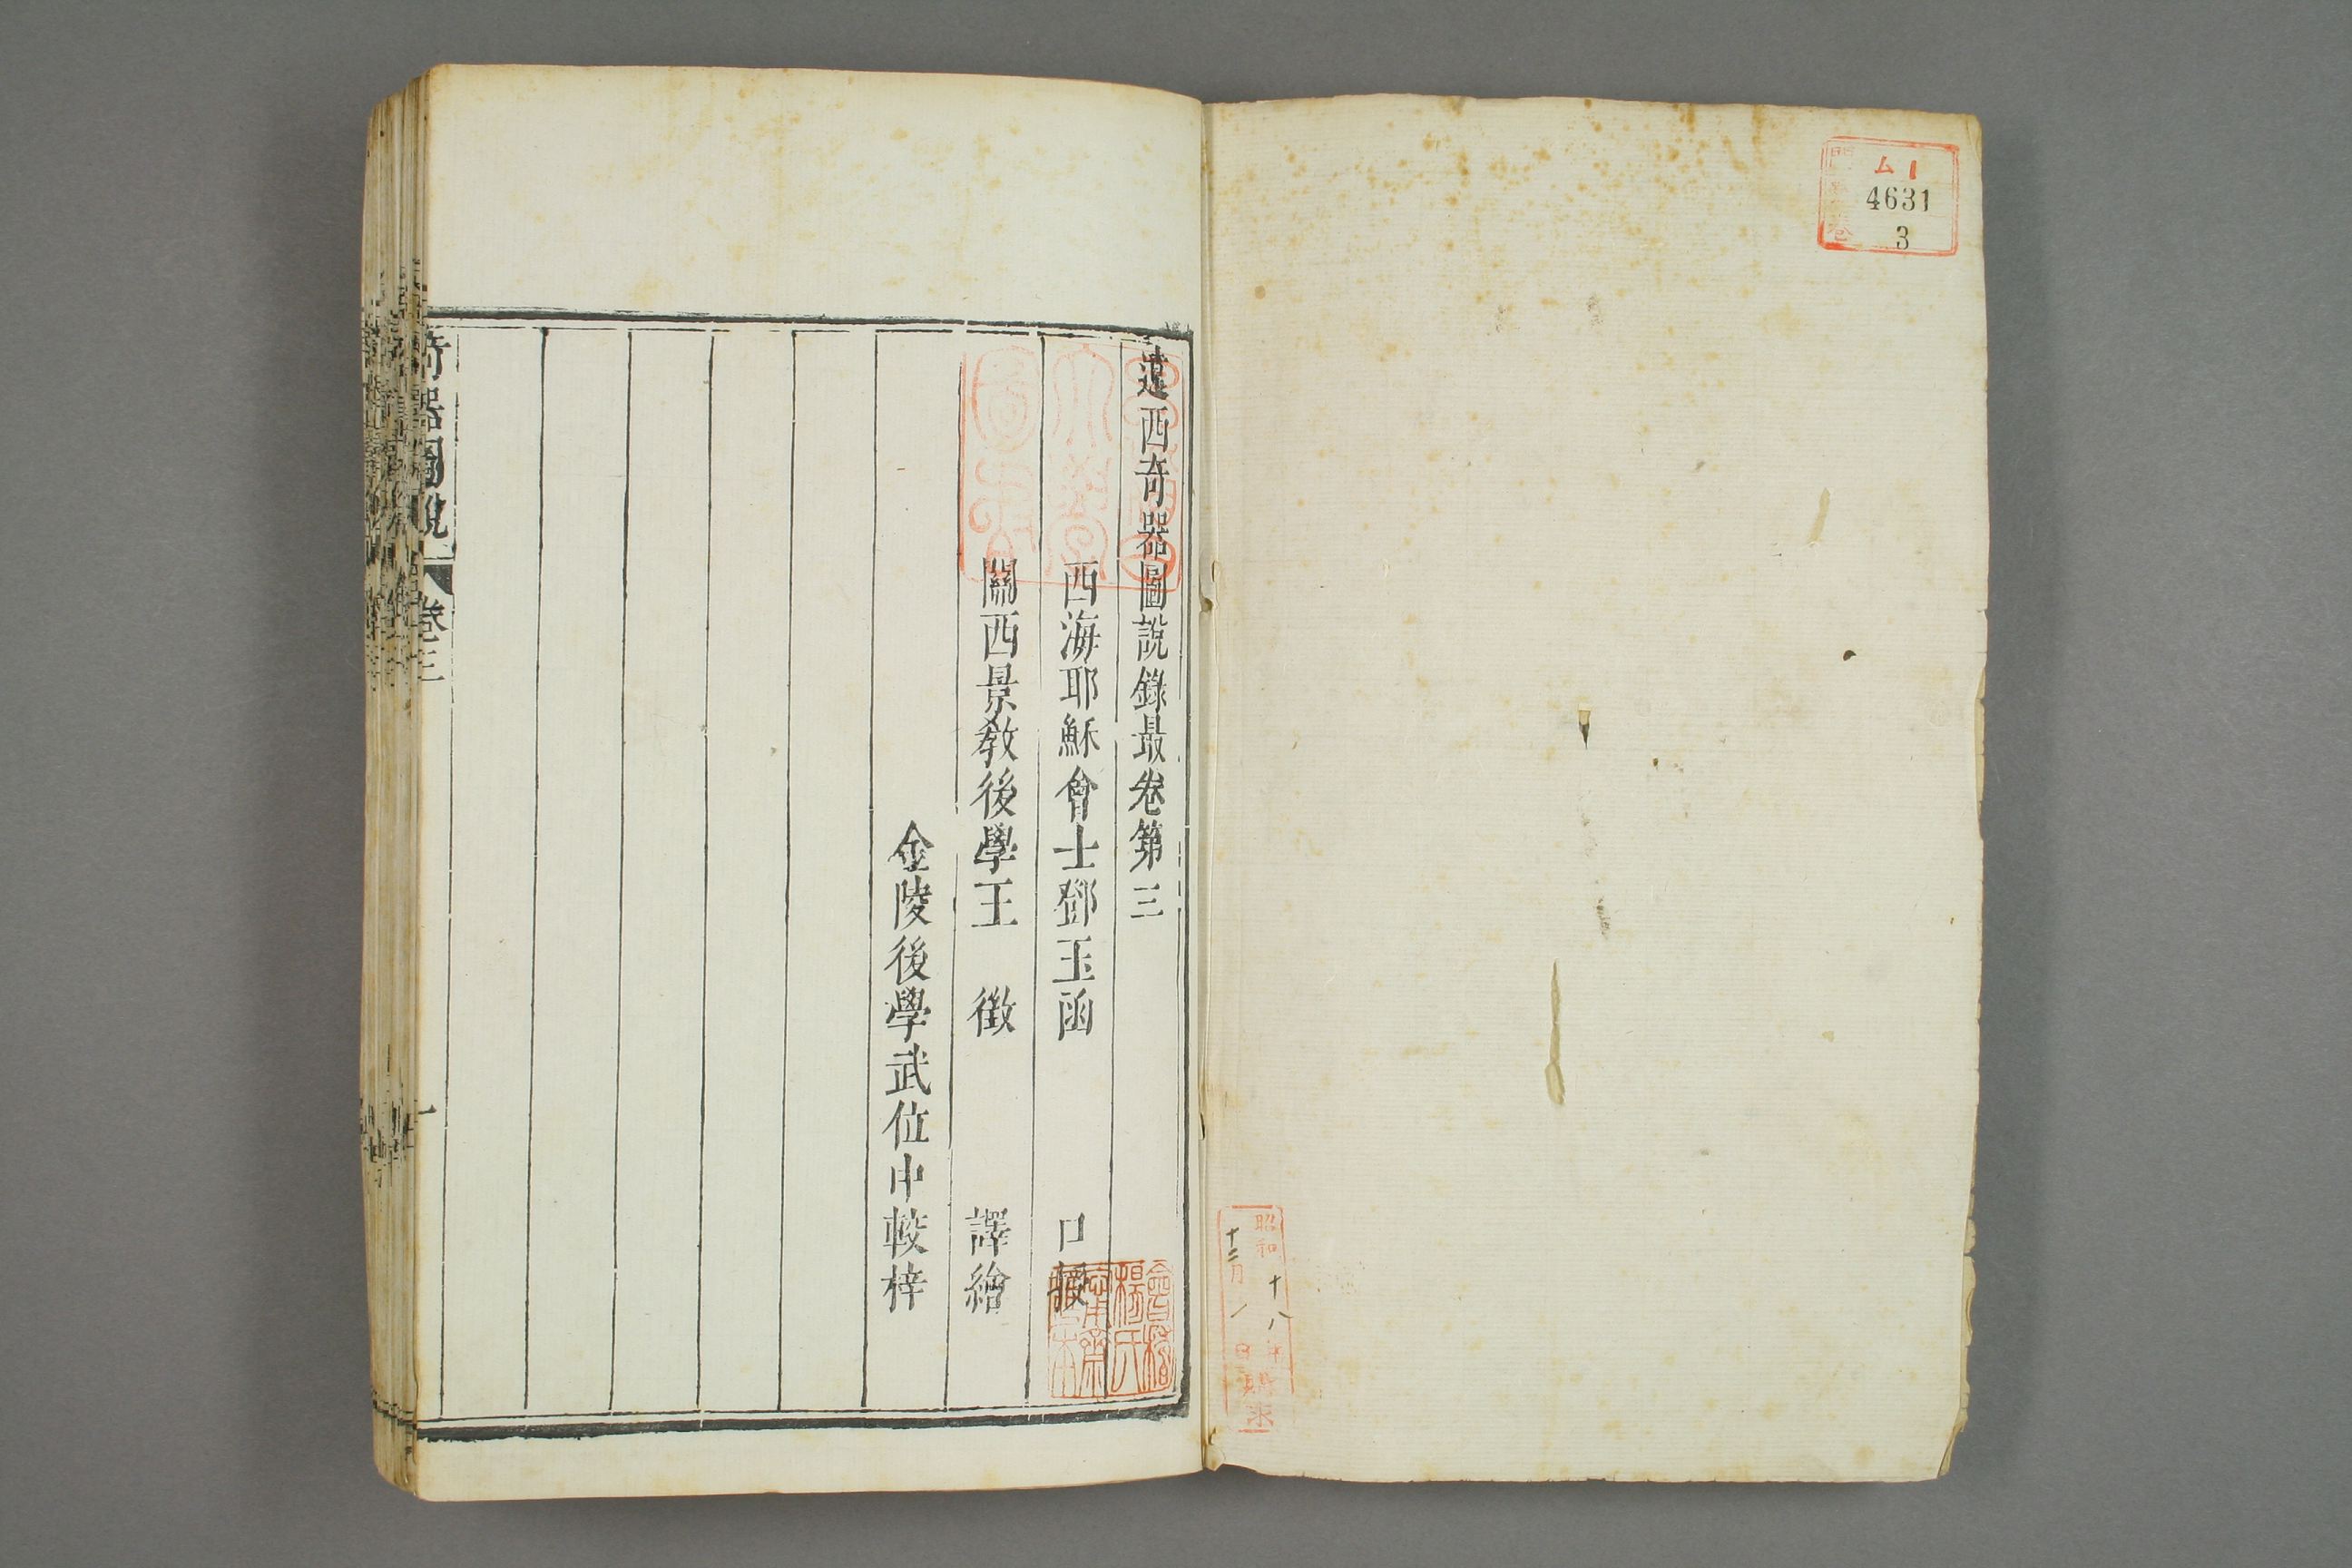 ム1
4631
3
昭和十八年
十二月一日
購求
遠西奇器圖說錄最卷第三
西海耶穌會士鄧玉函 口授
關西景教後學王 徵 譯繪
金陵後學武位中較梓
奇器圖說 卷三 一